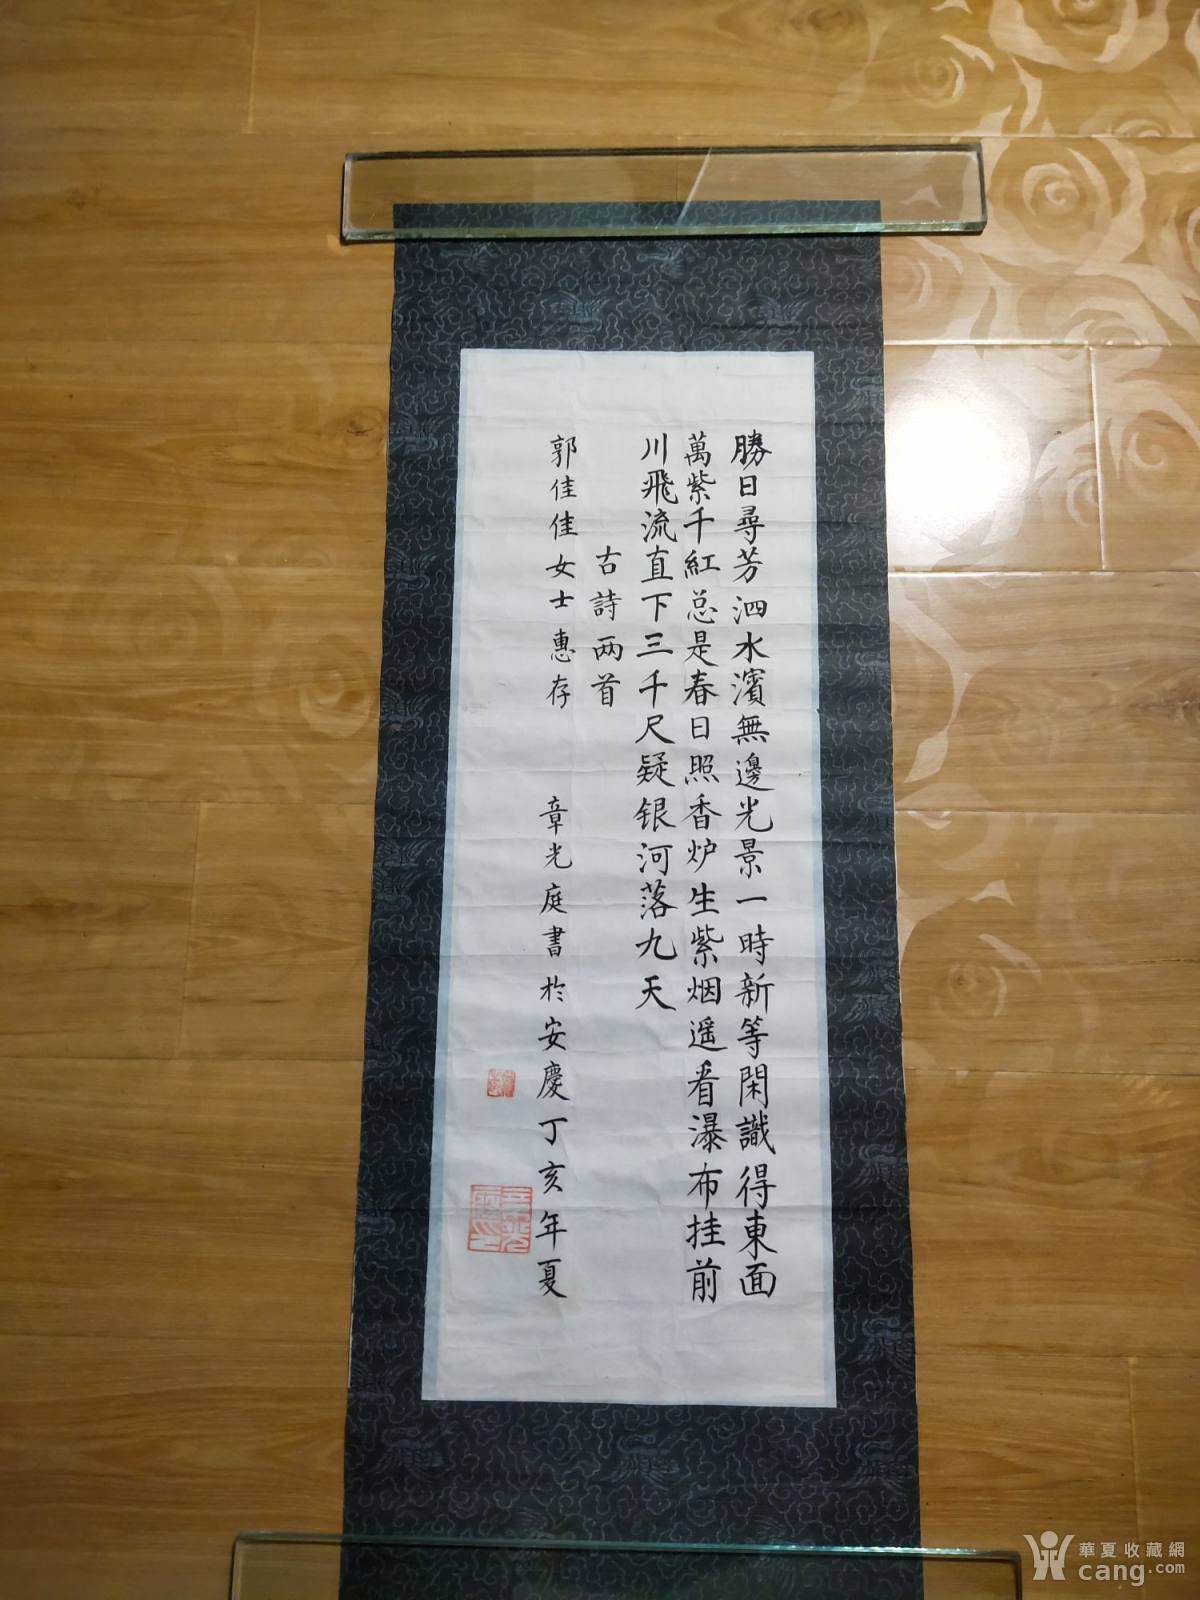 勝日尋芳泗水濱無邊光景一時新等閑識得東面
萬紫千紅总是春日照香炉生紫烟遥看瀑布挂前
川飛流直下三千尺疑银河落九天
古詩两首
郭佳佳女士惠存
章光庭書於安慶丁亥年夏
華夏收藏網
cang.com